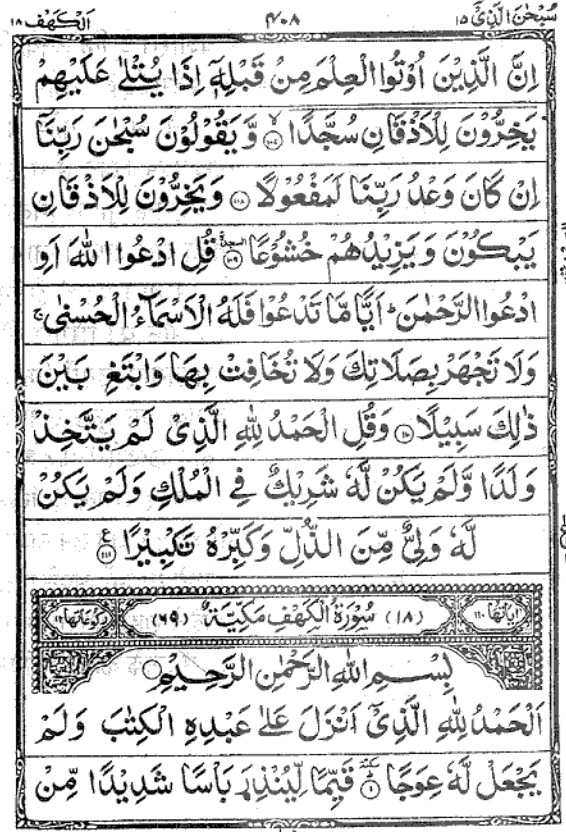 سُبْحٰنَ الَّذِيْٓ ۱۵ ۴۰۸ اَلْكَهْف ۱۸
اِنَّ الَّذِيْنَ اُوْتُوا الْعِلْمَ مِنْ قَبْلِهٖٓ اِذَا يُتْلٰى عَلَيْهِمْ
يَخِرُّوْنَ لِلْاَذْقَانِ سُجَّدًا ۙ﴿۱۰۷﴾ وَّيَقُوْلُوْنَ سُبْحٰنَ رَبِّنَآ
اِنْ كَانَ وَعْدُ رَبِّنَا لَمَفْعُوْلًا ﴿۱۰۸﴾ وَيَخِرُّوْنَ لِلْاَذْقَانِ
يَبْكُوْنَ وَيَزِيْدُهُمْ خُشُوْعًا ﴿۱۰۹﴾ السجدة قُلِ ادْعُوا اللّٰهَ اَوِ
ادْعُوا الرَّحْمٰنَ ؕ اَيًّا مَّا تَدْعُوْا فَلَهُ الْاَسْمَآءُ الْحُسْنٰى ۚ
وَلَا تَجْهَرْ بِصَلَاتِكَ وَلَا تُخَافِتْ بِهَا وَابْتَغِ بَيْنَ
ذٰلِكَ سَبِيْلًا ﴿۱۱۰﴾ وَقُلِ الْحَمْدُ لِلّٰهِ الَّذِيْ لَمْ يَتَّخِذْ
وَلَدًا وَّلَمْ يَكُنْ لَّهٗ شَرِيْكٌ فِي الْمُلْكِ وَلَمْ يَكُنْ
لَّهٗ وَلِيٌّ مِّنَ الذُّلِّ وَكَبِّرْهُ تَكْبِيْرًا ﴿۱۱۱﴾ ع
اٰيَاتُهَا ۱۱۰ (۱۸) سُوْرَةُ الْكَهْفِ مَكِّيَّةٌ (۶۹) رُكُوْعَاتُهَا ۱۲
بِسْمِ اللّٰهِ الرَّحْمٰنِ الرَّحِيْمِ
اَلْحَمْدُ لِلّٰهِ الَّذِيْٓ اَنْزَلَ عَلٰى عَبْدِهِ الْكِتٰبَ وَلَمْ
يَجْعَلْ لَّهٗ عِوَجًا ﴿۱﴾ قَيِّمًا لِّيُنْذِرَ بَاْسًا شَدِيْدًا مِّنْ